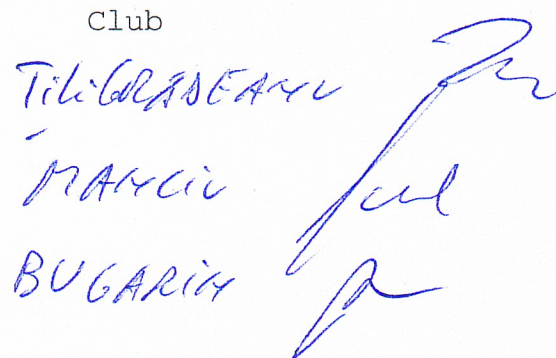 Club
TiLiGRĂDEANU
MANCiU
BUGARiN